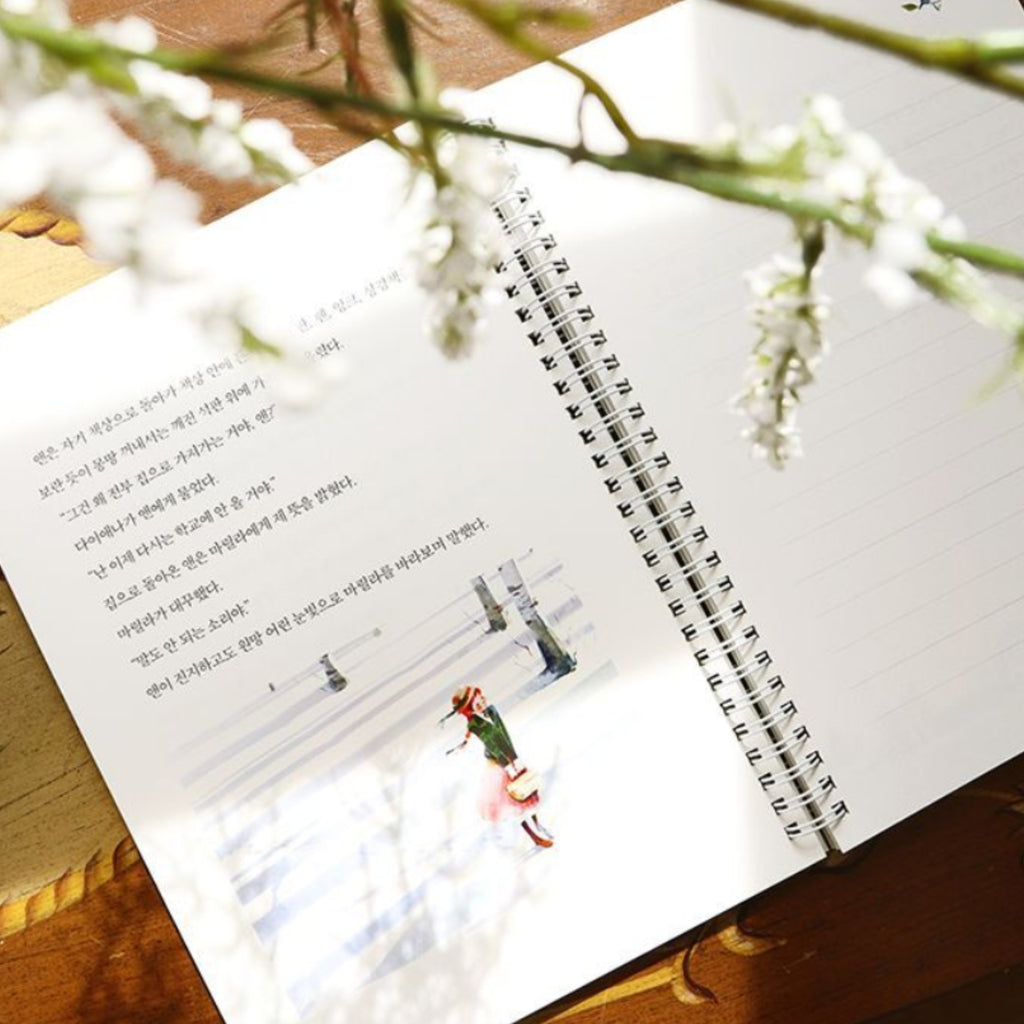 앤은 자기 책상으로 돌아가 책상 안에 펜, 잉크, 성경책
보란 듯이 몽땅 꺼내서는 깨진 석판 위에
"그건 왜 전부 집으로 가져가는 거야, 앤?"
다이애나가 앤에게 물었다.
"난 이제 다시는 학교에 안 올 거야."
집으로 돌아온 앤은 마릴라에게 제 뜻을 밝혔다.
마릴라가 대꾸했다.
"말도 안 되는 소리야."
앤이 진지하고도 원망 어린 눈빛으로 마릴라를 바라보며 말했다.